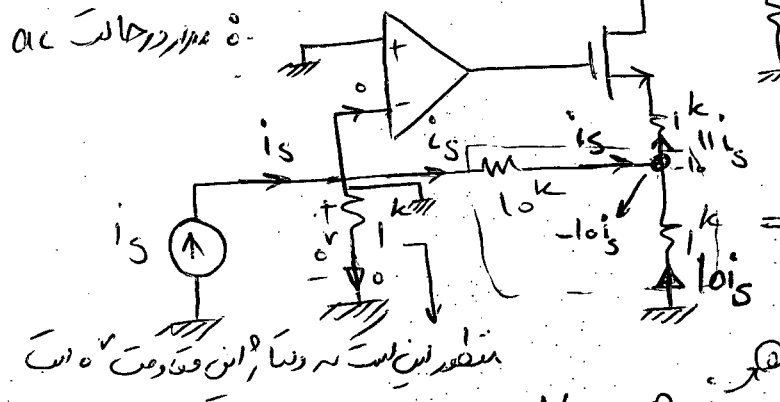 مدار در حالت ac :
+
-
0
i_s
i_s
i_s
i_s
10k
1k
11i_s
-10
-10i_s
1k
10i_s
+
0v
-
1k
0
منظور این است که ولتاژ این مقاومت 0v است
=